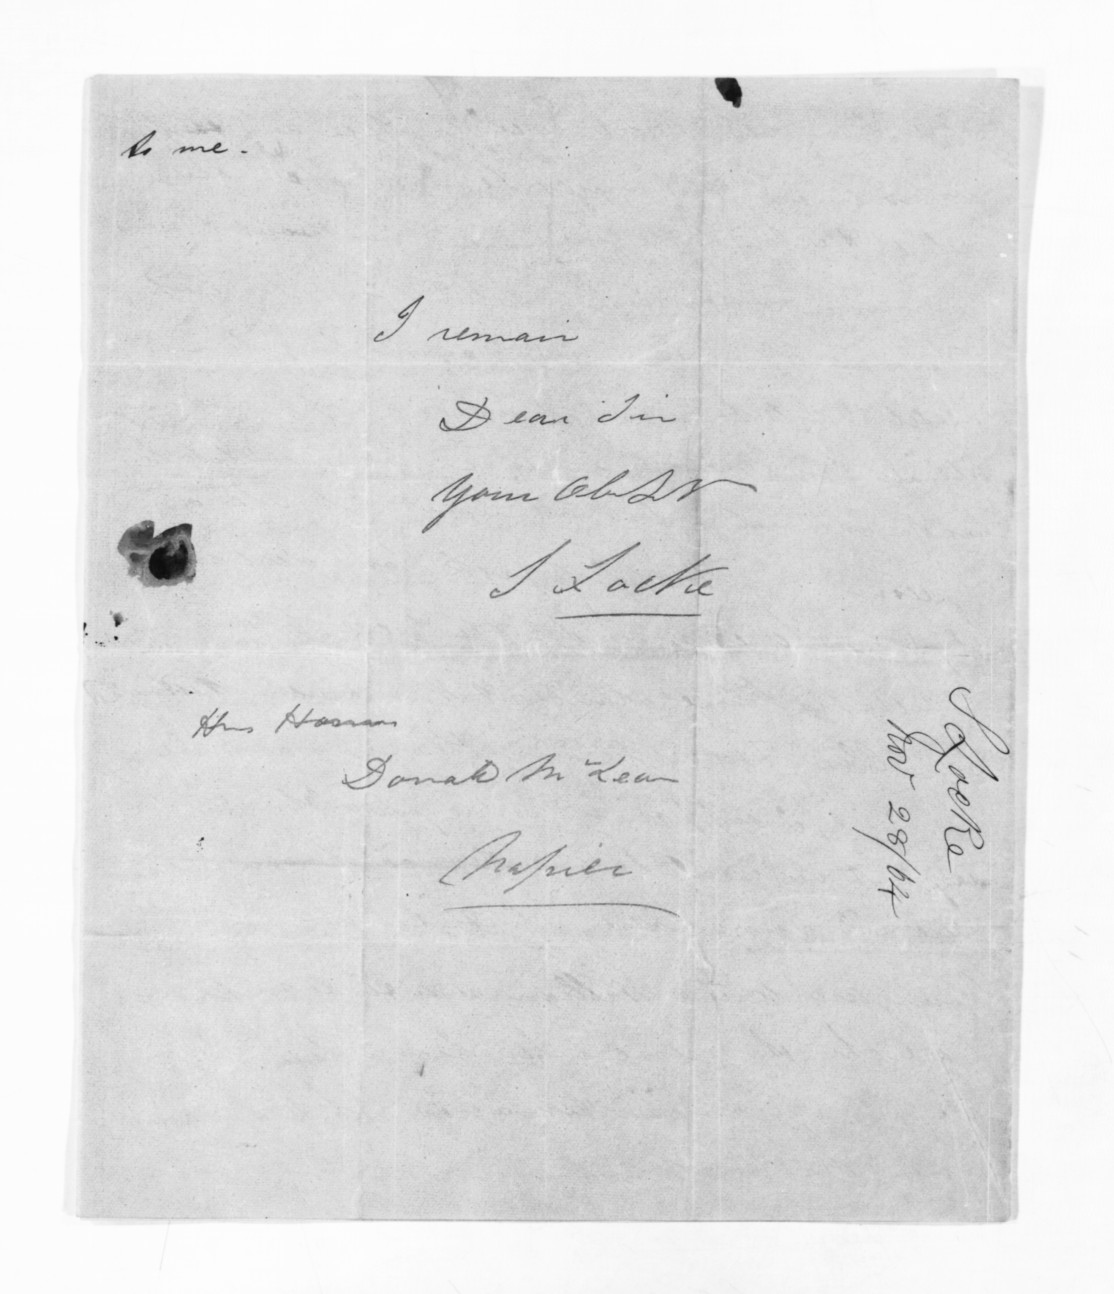 to me.
I remain
Dear Sir
Your Obt St
S Locke
His Honour
Donald McLean
Napier
S Locke
Nov 28/64